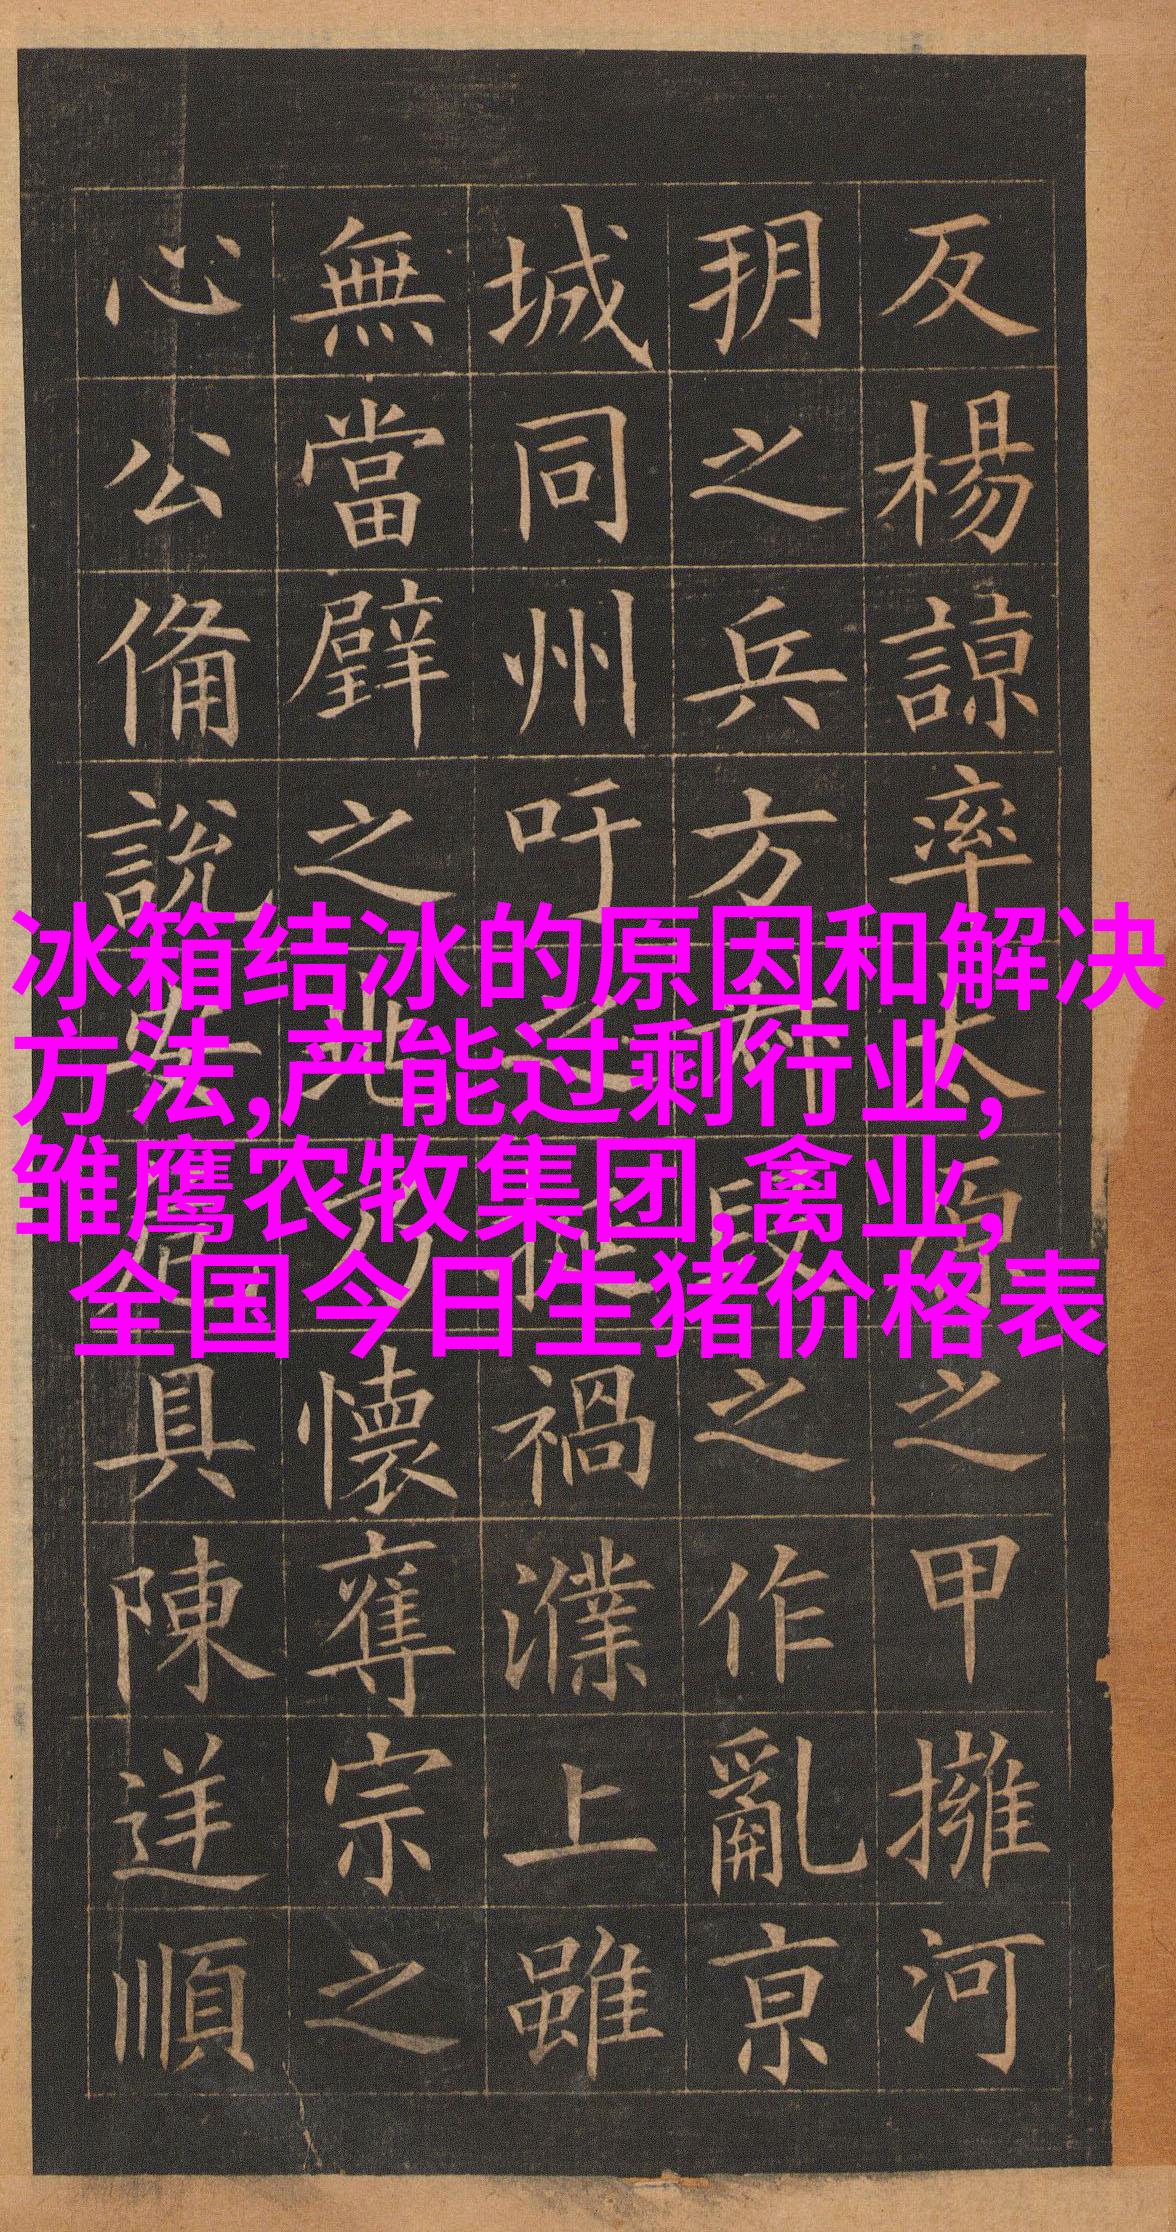 反楊諒率之甲擁河
玥之兵方段之作亂京
城同州吁之挺禍濮上雖
無當璧之兆乃懷奪宗之
心公備說安危具陳逆順
冰箱结冰的原因和解决
方法,产能过剩行业,
雏鹰农牧集团,禽业,
全国今日生猪价格表